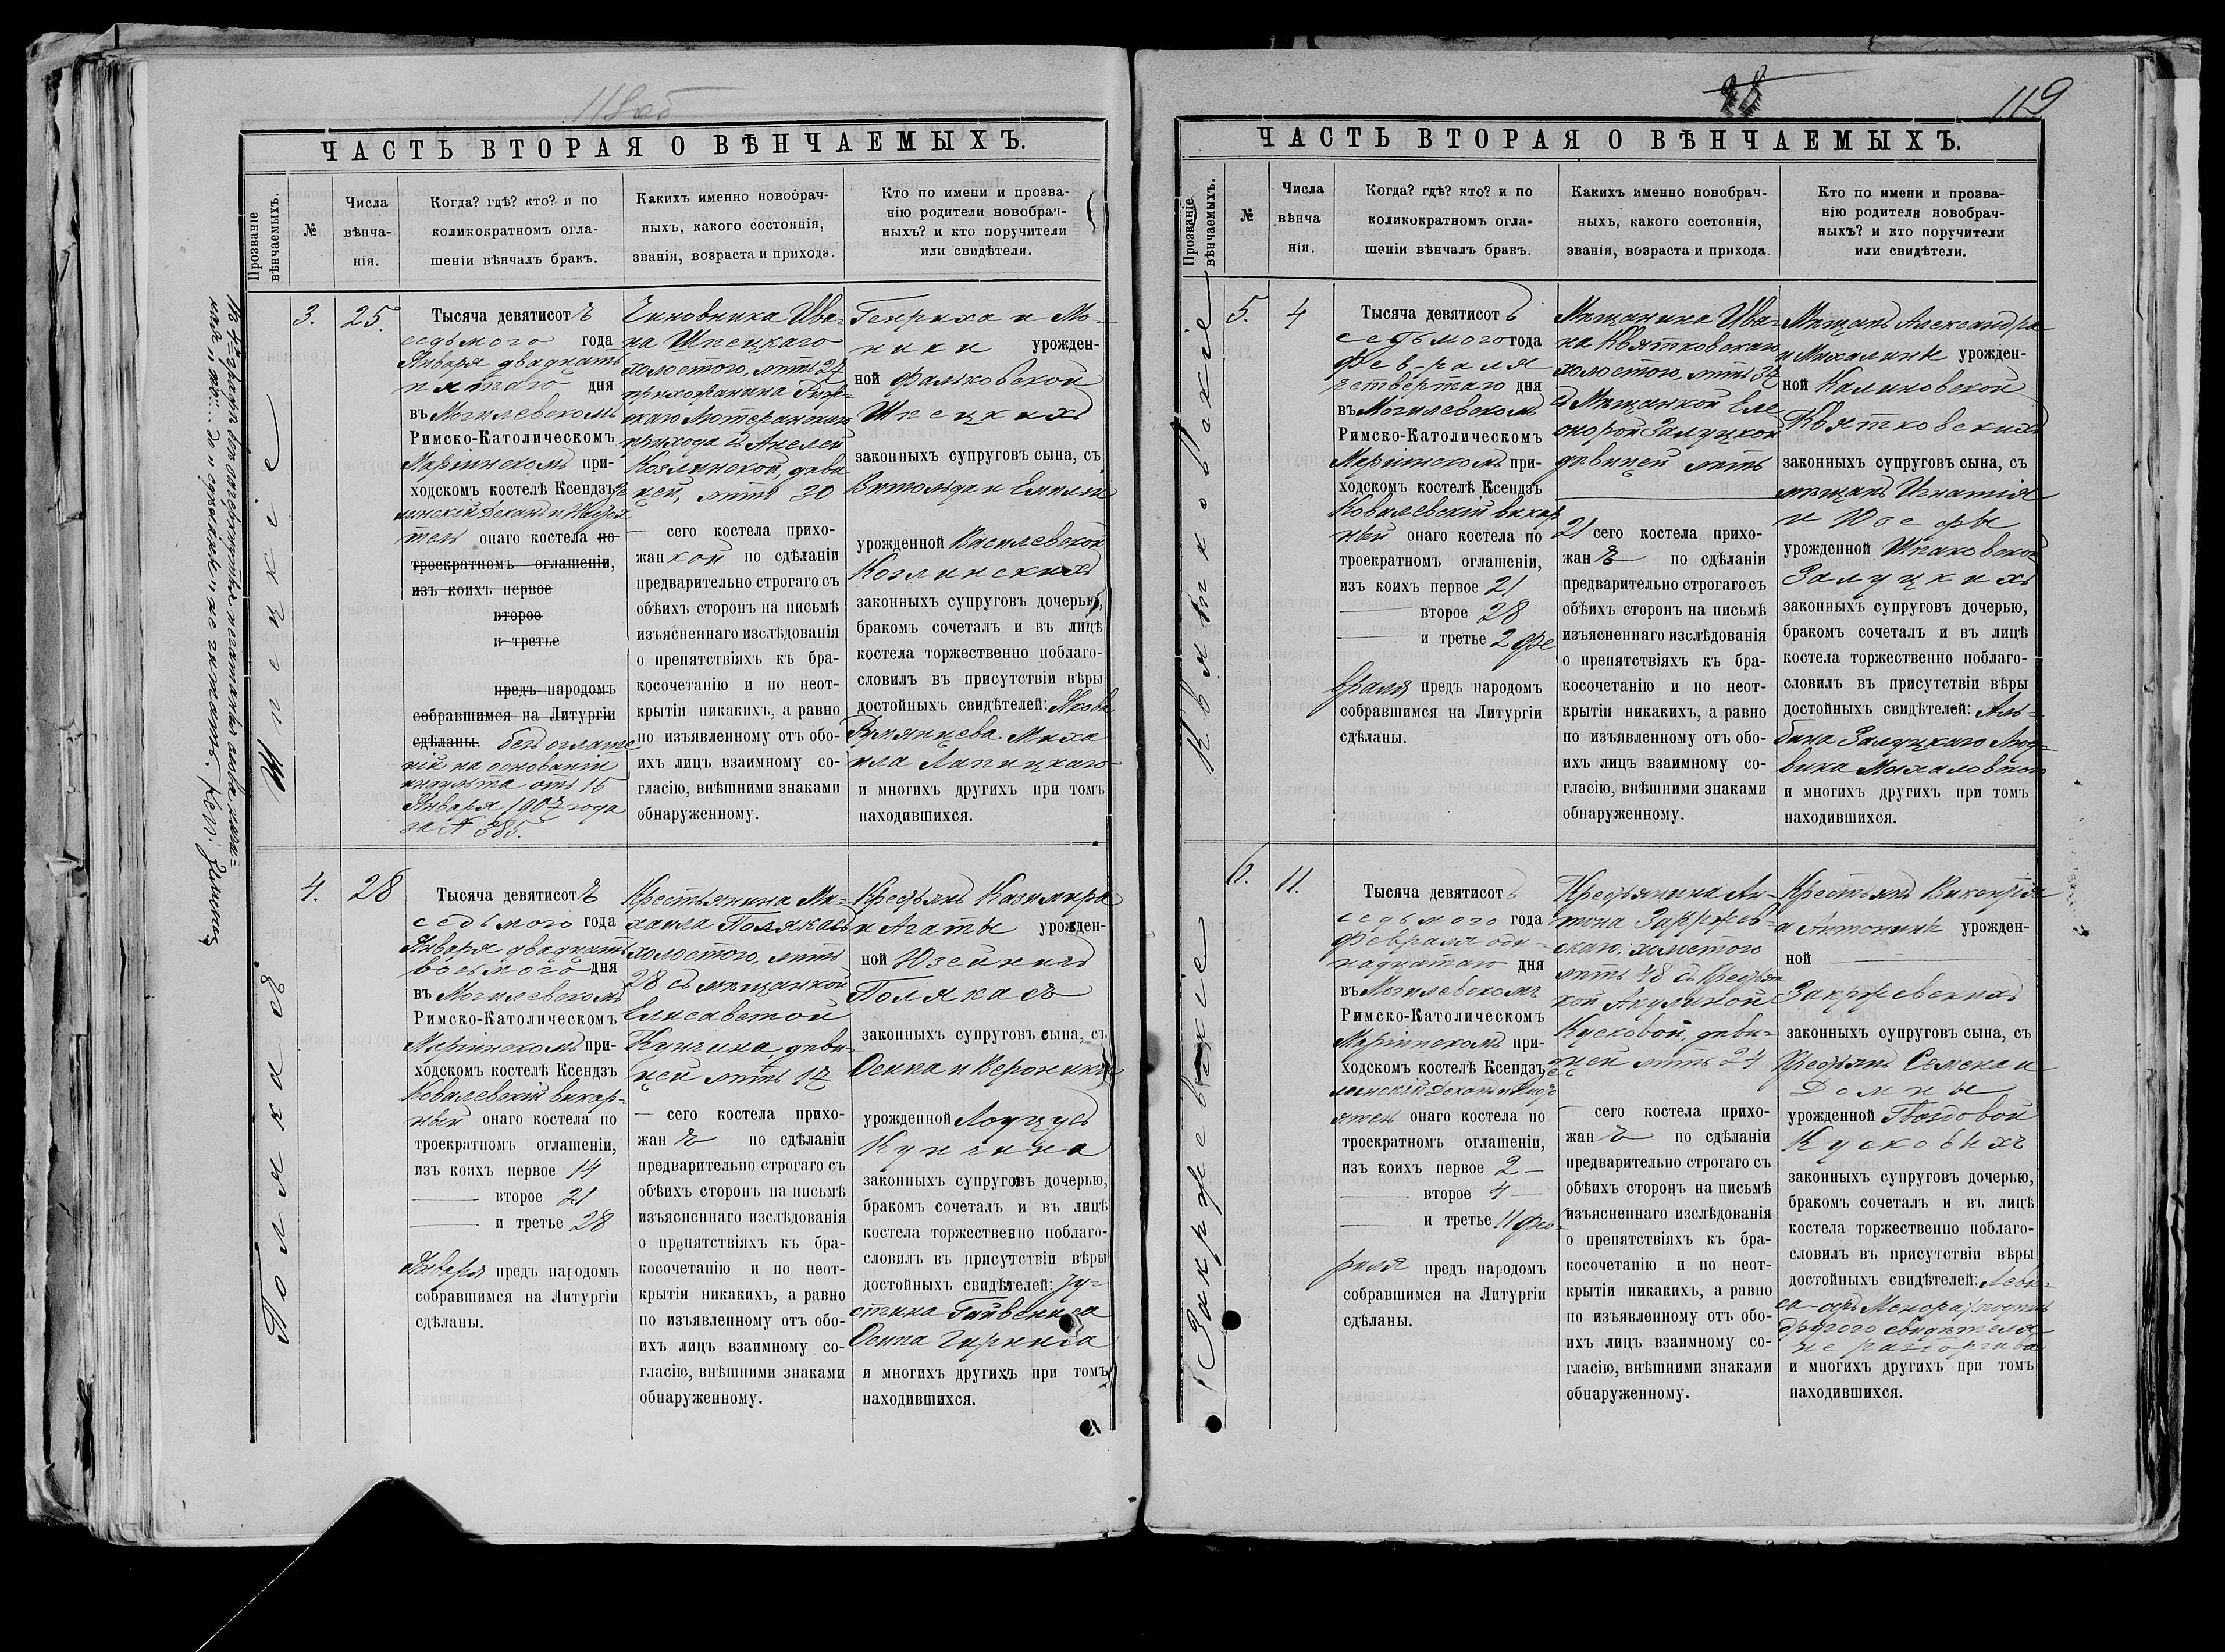 118 об
ЧАСТЬ ВТОРАЯ О ВѢНЧАЕМЫХЪ.
Прозваніе вѣнчаемыхъ.
№
Числа
вѣнча-
нія.
Когда? гдѣ? кто? и по
коликократномъ огла-
шеніи вѣнчалъ бракъ.
Какихъ именно новобрач-
ныхъ, какого состоянія,
званія, возраста и прихода.
Кто по имени и прозва-
нію родители новобрач-
ныхъ? и кто поручители
или свидѣтели.
Шпецкіе
3.
25.
Тысяча девятисотъ
седьмого года
Января двадцать
пятаго дня
въ Могилевскомъ
Римско-Католическомъ
Маріинскомъ при-
ходскомъ костелѣ Ксендзъ
онаго костела по
троекратномъ оглашеніи,
изъ коихъ первое
второе
и третье
предъ народомъ
собравшимся на Литургіи
сдѣланы. безъ оглаше
ній на основаніи
отъ 16
Января 1907 года
за № 385.
Чиновника Ива-
на Шпецкаго
холостого, лѣтъ 27
прихожанина Риж-
скаго Лютеранскаго
прихода съ Анелей
Козлинской, дѣви
цей, лѣтъ 30
сего костела прихо-
жанкой по сдѣланіи
предварительно строгаго съ
обѣихъ сторонъ на письмѣ
изъясненнаго изслѣдованія
о препятствіяхъ къ бра-
косочетанію и по неот-
крытіи никакихъ, а равно
по изъявленному отъ обо-
ихъ лицъ взаимному со-
гласію, внѣшними знаками
обнаруженному.
Генриха и Мо-
ники урожден-
ной Фальковской
Шпецкихъ
законныхъ супруговъ сына, съ
Витольда и Емиліи
урожденной Василевской
Козлинскихъ
законныхъ супруговъ дочерью,
бракомъ сочеталъ и въ лицѣ
костела торжественно поблаго-
словилъ въ присутствіи вѣры
достойныхъ свидѣтелей: Якова
Румянцева Миха
ила Лапицкаго
и многихъ другихъ при томъ
находившихся.
Полякасъ
4.
28
Тысяча девятисотъ
седьмого года
Января двадцать
восьмого дня
въ Могилевскомъ
Римско-Католическомъ
Маріинскомъ при-
ходскомъ костелѣ Ксендзъ
Ковалевскій викар-
ный онаго костела по
троекратномъ оглашеніи,
изъ коихъ первое 14
второе 21
и третье 28
Января предъ народомъ
собравшимся на Литургіи
сдѣланы.
Крестьянина Ми-
хаила Полякасъ
холостого, лѣтъ
28 съ мѣщанкой
Елисаветой
Кунчина, дѣви-
цей лѣтъ 17
сего костела прихо-
жанъ по сдѣланіи
предварительно строгаго съ
обѣихъ сторонъ на письмѣ
изъясненнаго изслѣдованія
о препятствіяхъ къ бра-
косочетанію и по неот-
крытіи никакихъ, а равно
по изъявленному отъ обо-
ихъ лицъ взаимному со-
гласію, внѣшними знаками
обнаруженному.
Крестьянъ Казимира
и Агаты урожден-
ной
Полякасъ
законныхъ супруговъ сына, съ
Осипа и Вероники
урожденной
Кунчина
законныхъ супруговъ дочерью,
бракомъ сочеталъ и въ лицѣ
костела торжественно поблаго-
словилъ въ присутствіи вѣры
достойныхъ свидѣтелей: Ју-
стина
Осипа
и многихъ другихъ при томъ
находившихся.
119
ЧАСТЬ ВТОРАЯ О ВѢНЧАЕМЫХЪ.
Прозваніе вѣнчаемыхъ.
№
Числа
вѣнча
нія.
Когда? гдѣ? кто? и по
коликократномъ огла-
шеніи вѣнчалъ бракъ.
Какихъ именно новобрач-
ныхъ, какого состоянія,
званія, возраста и прихода.
Кто по имени и прозва-
нію родители новобрач-
ныхъ? и кто поручители
или свидѣтели.
Квятковскіе
5.
4
Тысяча девятисотъ
седьмого года
Февраля
четвертаго дня
въ Могилевскомъ
Римско-Католическомъ
Маріинскомъ при-
ходскомъ костелѣ Ксендзъ
Ковалевскій викар
ный онаго костела по
троекратномъ оглашеніи,
изъ коихъ первое 21
второе 28
и третье 2 Фе
враля предъ народомъ
собравшимся на Литургіи
сдѣланы.
Мѣщанина Ива-
на Квятковскаго
холостого, лѣтъ 32
съ Мѣщанкой Еле
онорой Залуцкой
дѣвицей лѣтъ
21 сего костела прихо-
жанъ по сдѣланіи
предварительно строгаго съ
обѣихъ сторонъ на письмѣ
изъясненнаго изслѣдованія
о препятствіяхъ къ бра-
косочетанію и по неот-
крытіи никакихъ, а равно
по изъявленному отъ обо-
ихъ лицъ взаимному со-
гласію, внѣшними знаками
обнаруженному.
Мѣщанъ Александра
и Михалины урожден-
ной Калиновской
Квятковскихъ
законныхъ супруговъ сына, съ
мѣщанъ Игнатія
и Юзефы
урожденной Шпаковской
Залуцкихъ
законныхъ супруговъ дочерью,
бракомъ сочеталъ и въ лицѣ
костела торжественно поблаго-
словилъ въ присутствіи вѣры
достойныхъ свидѣтелей: Аль-
бина Залуцкаго Люд-
вика
и многихъ другихъ при томъ
находившихся.
Закржевскіе
6.
11.
Тысяча девятисотъ
седьмого года
Февраля оди-
надцатаго дня
въ Могилевскомъ
Римско-Католическомъ
Маріинскомъ при-
ходскомъ костелѣ Ксендзъ
онаго костела по
троекратномъ оглашеніи,
изъ коихъ первое 2
второе 4
и третье 11 Фев-
раля предъ народомъ
собравшимся на Литургіи
сдѣланы.
Крестьянина Ан-
тона Закржев-
скаго, холостого
лѣтъ 48 съ Крестьян
кой Акулиной
Кусковой, дѣви-
цей лѣтъ 24
сего костела прихо-
жанъ по сдѣланіи
предварительно строгаго съ
обѣихъ сторонъ на письмѣ
изъясненнаго изслѣдованія
о препятствіяхъ къ бра-
косочетанію и по неот-
крытіи никакихъ, а равно
по изъявленному отъ обо-
ихъ лицъ взаимному со-
гласію, внѣшними знаками
обнаруженному.
Крестьянъ Викентія
и Антонины урожден-
ной
Закржевскихъ
законныхъ супруговъ сына, съ
Крестьянъ Семена и
Домны
урожденной
Кусковыхъ
законныхъ супруговъ дочерью,
бракомъ сочеталъ и въ лицѣ
костела торжественно поблаго-
словилъ въ присутствіи вѣры
достойныхъ свидѣтелей:
подпись
другого свидѣтеля
не разборчива
и многихъ другихъ при томъ
находившихся.